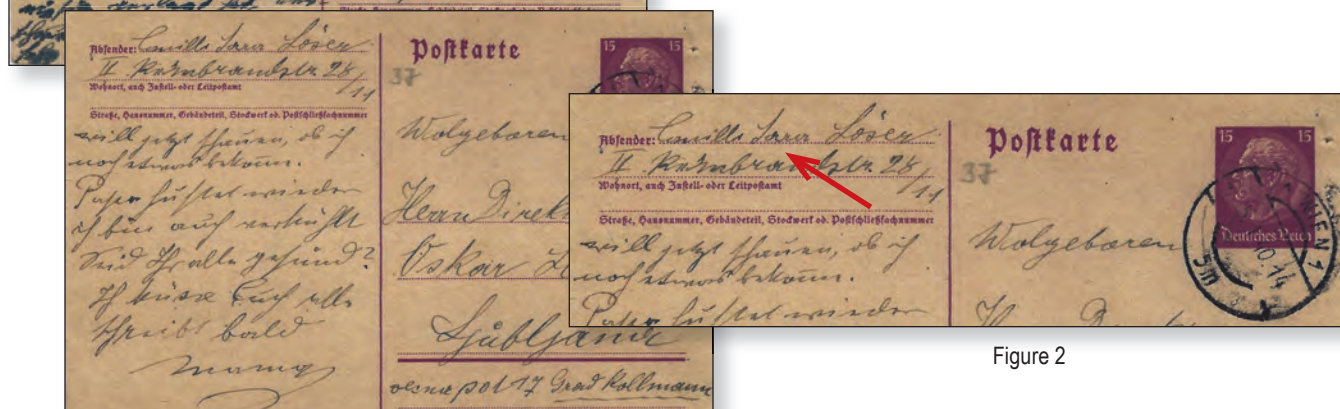 Absender: Camilla Sara Löser
II Rembrandstr. 28/11
Wohnort, auch Zustell- oder Leitpostamt
Straße, Hausnummer, Gebäudeteil, Stockwerk od. Postschließfachnummer
will jetzt schauen, ob ich
noch etwas bekomm.
Papa hustet wieder
ich bin auch verkühlt
Seid Ihr alle gesund?
Ich küsse Euch alle
schreibt bald
Mama
Postkarte
37
15 15
Wolgeboren
Herrn Direkt
Oskar
Ljubljana
vesna pot 17 Grad Kollmann
Absender: Camilla Sara Löser
II Rembrandstr. 28/11
Wohnort, auch Zustell- oder Leitpostamt
Straße, Hausnummer, Gebäudeteil, Stockwerk od. Postschließfachnummer
will jetzt schauen, ob ich
noch etwas bekomm.
Papa hustet wieder
Postkarte
37
15 15
Deutsches Reich
WIEN 1
Wolgeboren
Figure 2